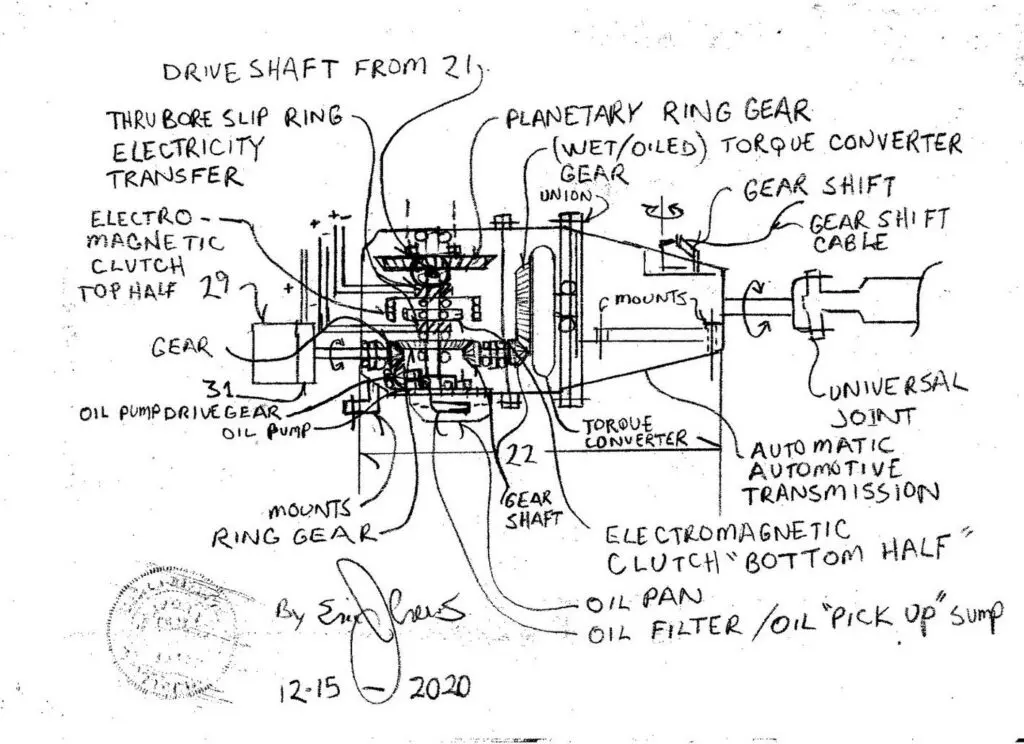 DRIVE SHAFT FROM 21
THRU BORE SLIP RING
ELECTRICITY
TRANSFER
PLANETARY RING GEAR
(WET/OILED) TORQUE CONVERTER
GEAR
UNION
GEAR SHIFT
GEAR SHIFT
CABLE
ELECTRO
MAGNETIC
CLUTCH
TOP HALF
29
+
+
-
+
-
MOUNTS
GEAR
31
OIL PUMP DRIVE GEAR
OIL PUMP
UNIVERSAL
JOINT
TORQUE
CONVERTER
22
AUTOMATIC
AUTOMOTIVE
TRANSMISSION
GEAR
SHAFT
MOUNTS
RING GEAR
ELECTROMAGNETIC
CLUTCH "BOTTOM HALF"
OIL PAN
OIL FILTER / OIL "PICK UP" SUMP
By Eric Crews
12-15-2020